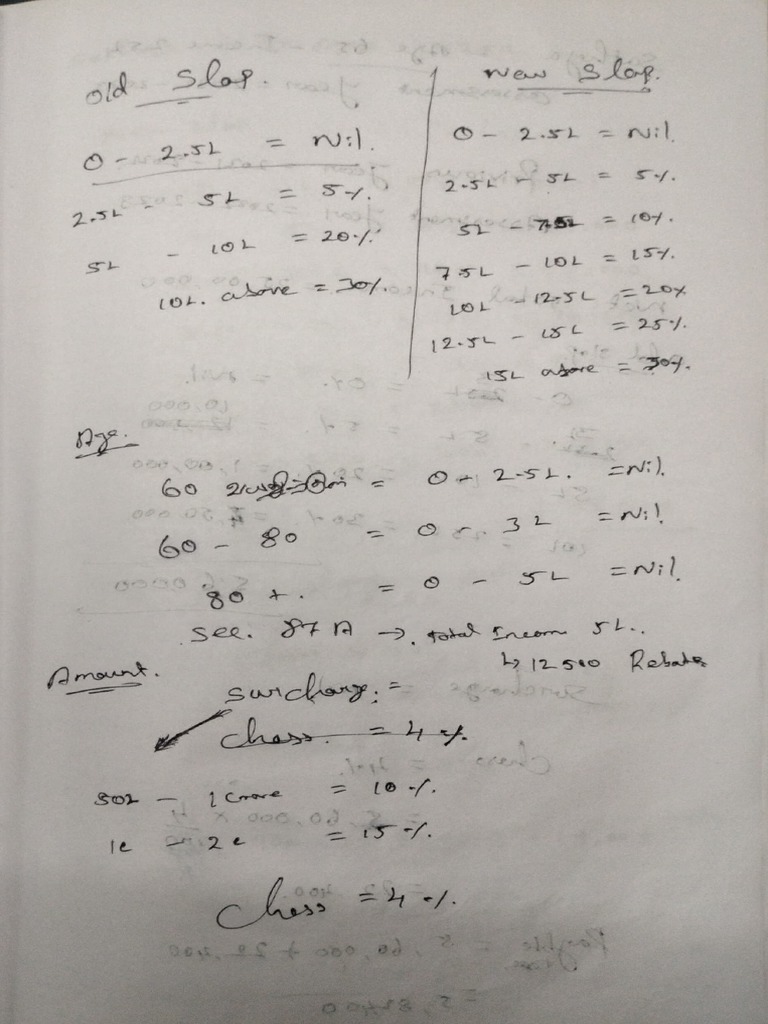 Old Slap.
0 - 2.5L = Nil.
2.5L - 5L = 5%
5L - 10L = 20%
10L. above = 30%
New Slap.
0 - 2.5L = Nil.
2.5L - 5L = 5%.
5L - 7.5L = 10%
7.5L - 10L = 15%.
10L - 12.5L = 20%
12.5L - 15L = 25%.
15L above = 30%.
Age.
60 = 0 - 2.5L. = Nil.
60 - 80 = 0 - 3L = Nil.
80 +. = 0 - 5L = Nil.
See. 87 A → total Incom 5L..
↳ 12500 Rebate
Amount.
Surcharge: =
Chess. = 4 %.
50L - 1 Crore = 10 %.
1c - 2c = 15 %.
Chess = 4 %.